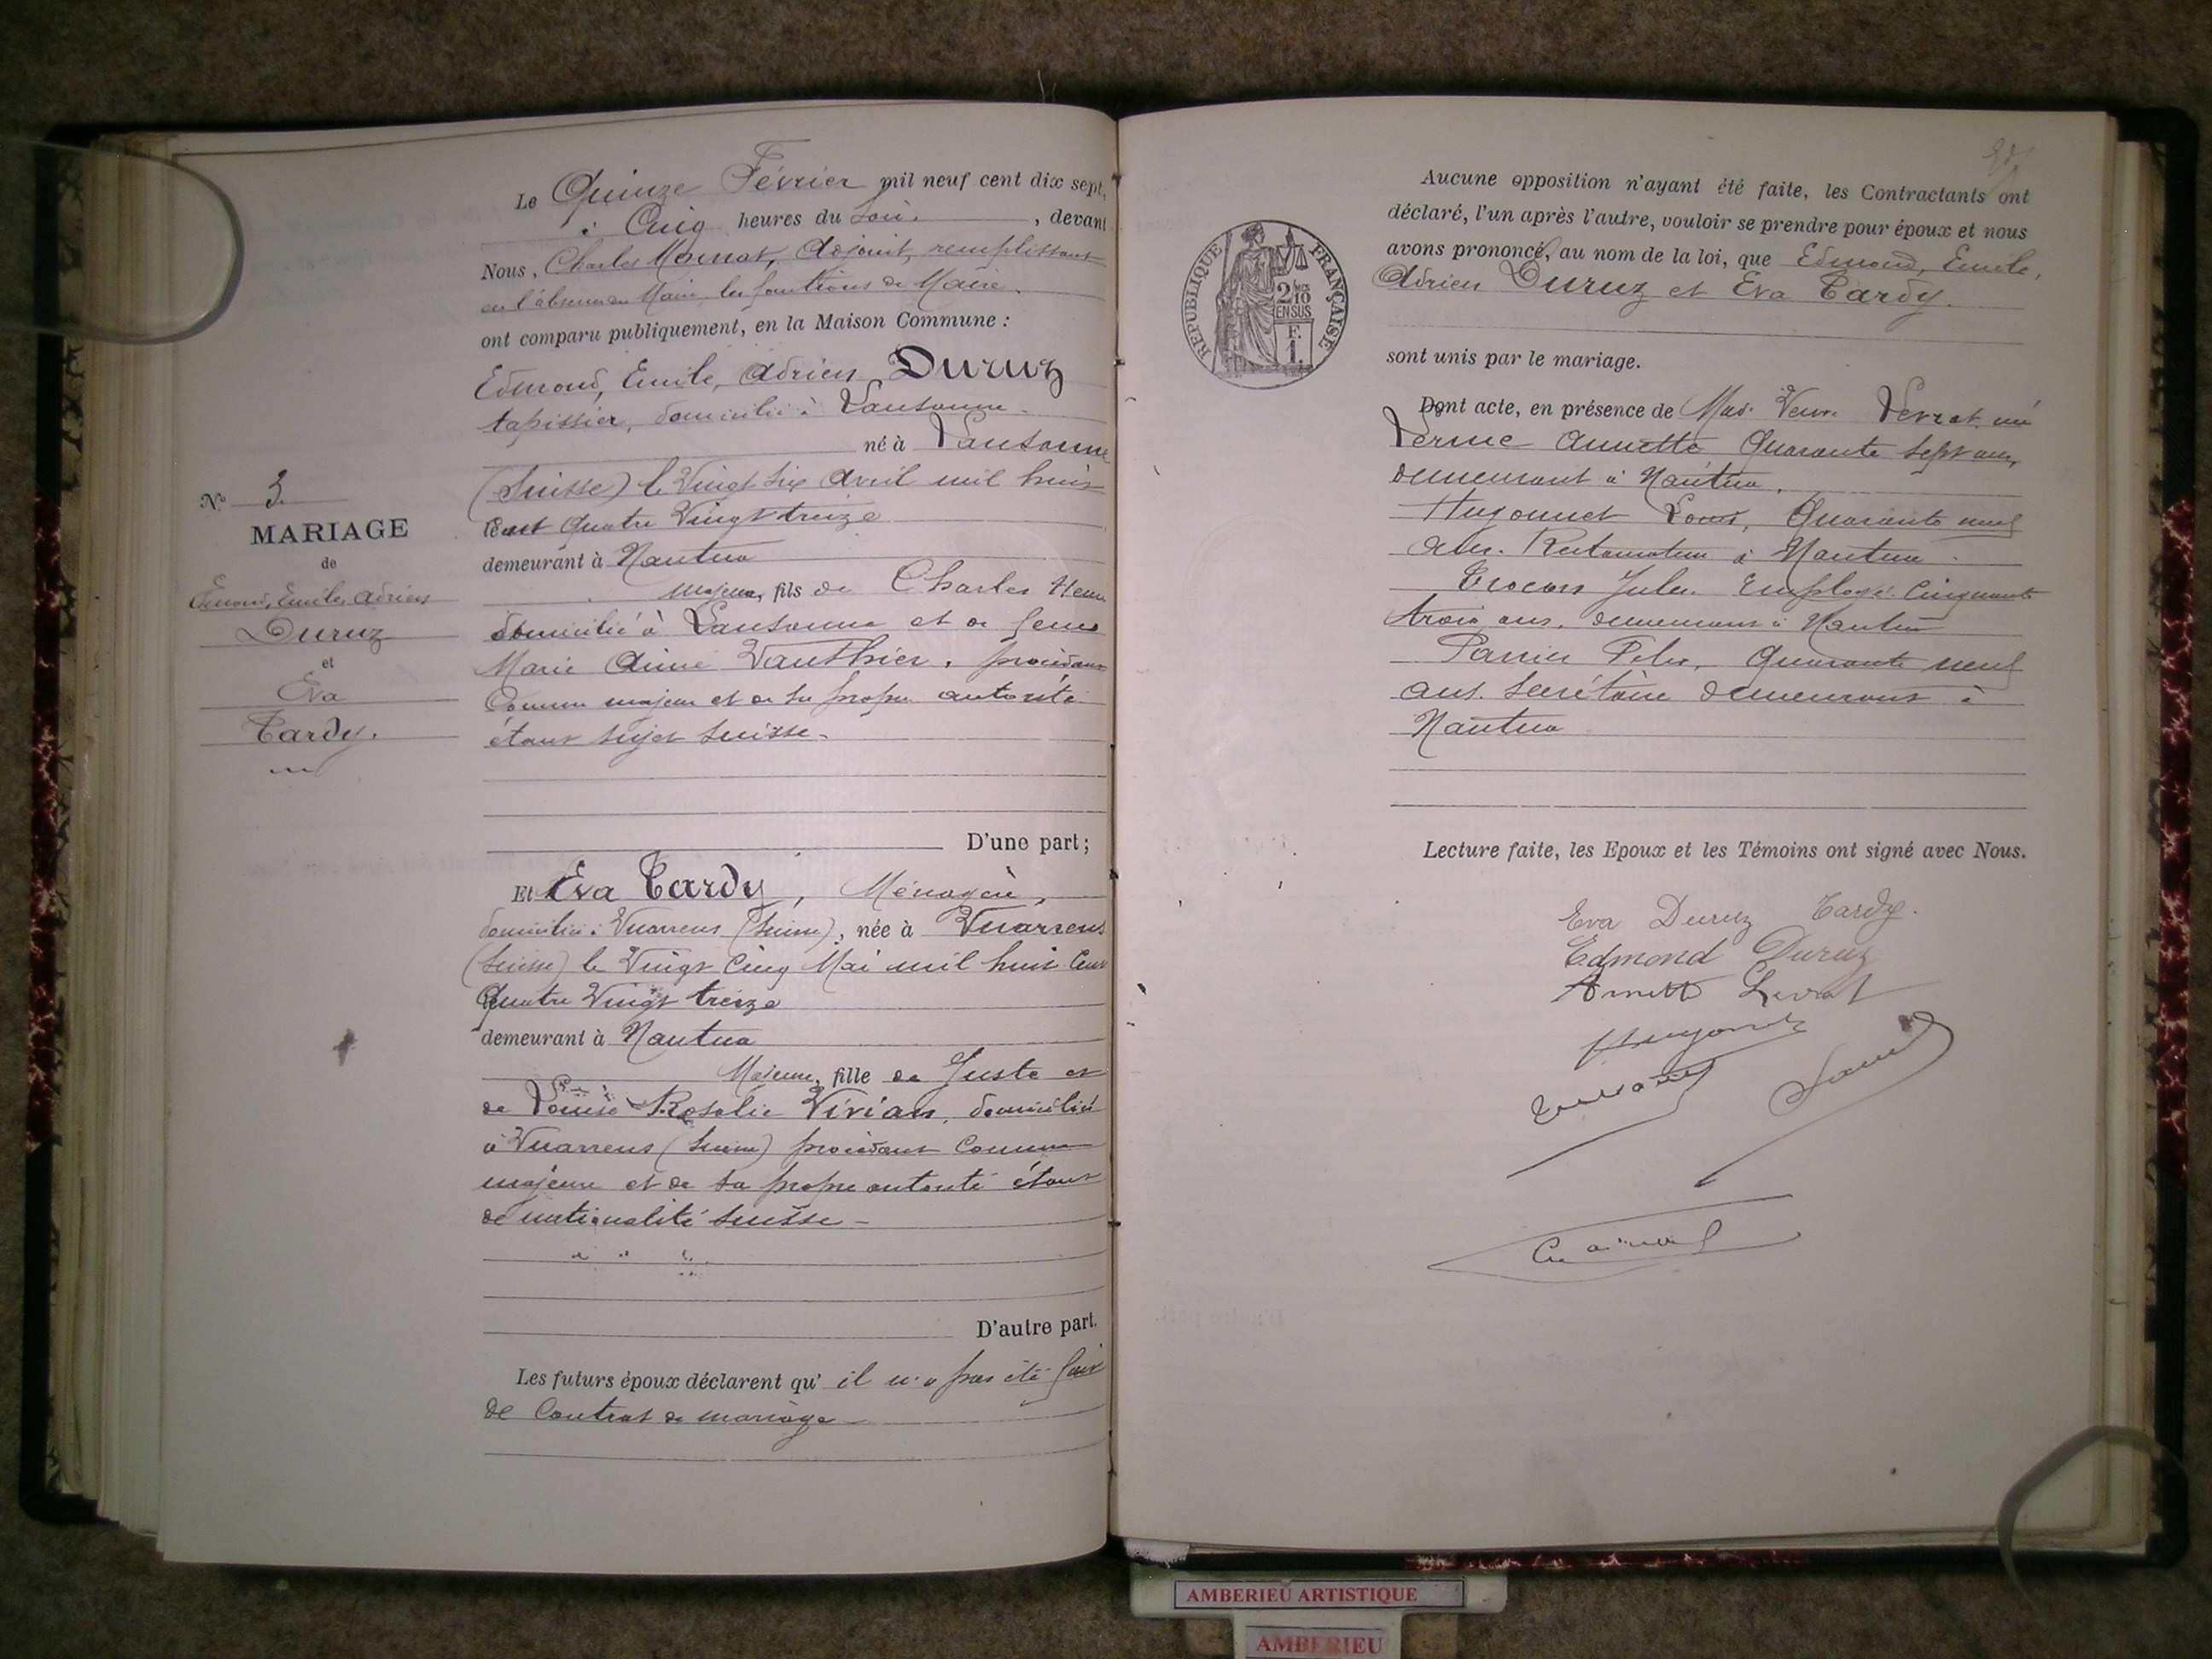 Le Quinze Février mil neuf cent dix sept,
à Cinq heures du Soir. , devant
Nous, Charles Adjoint, remplissant
en l'absence du Maire les fonctions de Maire.
ont comparu publiquement, en la Maison Commune :
Edmond, Emile, Adrien Duruz
tapissier, domicilié à Lausanne
né à Lausanne
(Suisse) le Vingt Six Avril mil huit
Cent Quatre Vingt treize
demeurant à Nantua
Majeur, fils de Charles Henri
domicilié à Lausanne et de feue
Marie Aimé Vauthier, procédant
Comme majeur et de sa propre autorité
étant sujet Suisse.
D'une part ;
Et Eva Tardy, Ménagère,
domiciliée à Vuarrens (Suisse), née à Vuarrens
(Suisse) le Vingt Cinq Mai mil huit Cent
Quatre Vingt treize
demeurant à Nantua
Majeure, fille de Juste et
de Louise Rosalie Vivian, domiciliés
à Vuarrens (Suisse) procédant Comme
majeure et de sa propre autorité étant
de nationalité Suisse
D'autre part.
Les futurs époux déclarent qu' il n'a pas été fait
de Contrat de mariage
No 3
MARIAGE
de
Edmond, Emile, Adrien
Duruz
et
Eva
Tardy.
Aucune opposition n'ayant été faite, les Contractants ont
déclaré, l'un après l'autre, vouloir se prendre pour époux et nous
avons prononcé, au nom de la loi, que Edmond, Emile,
Adrien Duruz et Eva Tardy.
sont unis par le mariage.
Dont acte, en présence de Mad. Veuve Levrat née
Annette Quarante Sept ans,
demeurant à Nantua.
Hugonnet Louis, Quarante neuf
ans. Restaurateur à Nantua.
Jules. Employé. Cinquante
trois ans. demeurant à Nantua
Quarante neuf
ans. Secrétaire demeurant à
Nantua
Lecture faite, les Epoux et les Témoins ont signé avec Nous.
Eva Duruz Tardy.
Edmond Duruz
Annette Levrat
Hugonnet
RÉPUBLIQUE FRANÇAISE
2/10
EN SUS
F.
1.
AMBERIEU ARTISTIQUE
AMBERIEU